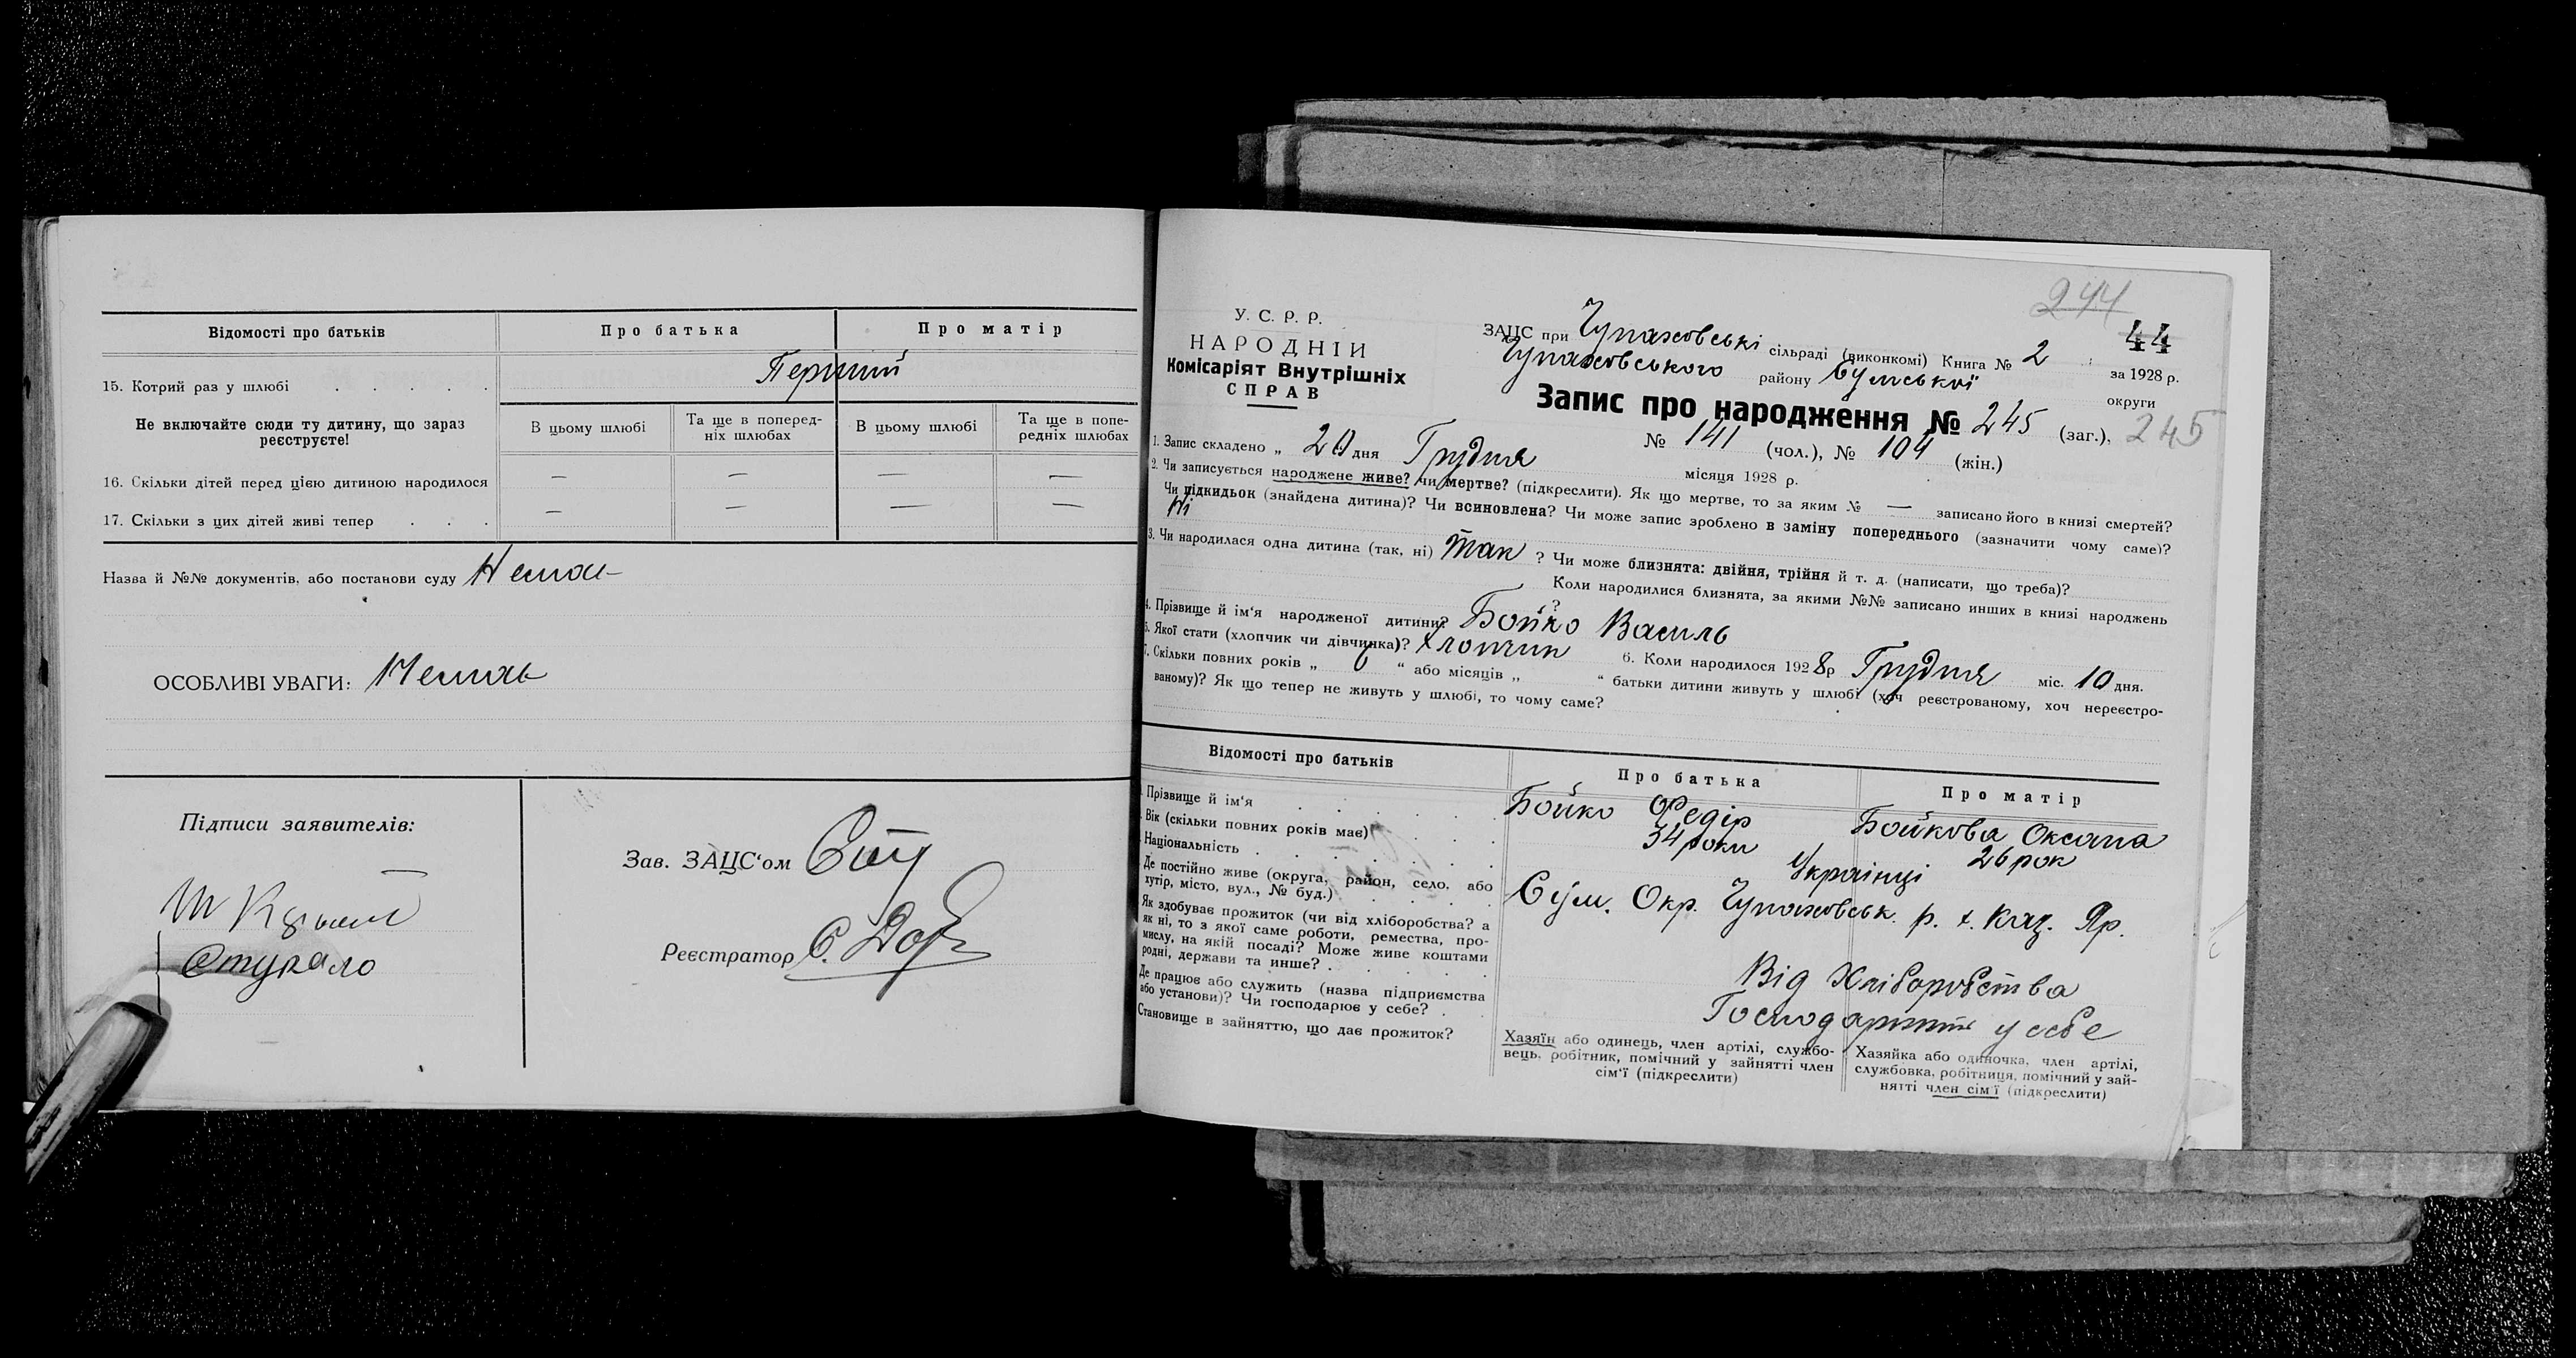 Відомості про батьків Про батька Про матір
15. Котрий раз у шлюбі . . . . . Перший
Не включайте сюди ту дитину, що зараз реєструєте!
В цьому шлюбі Та ще в поперед-ніх шлюбах В цьому шлюбі Та ще в попе-редніх шлюбах
16. Скільки дітей перед цією дитиною народилося — — — —
17. Скільки з цих дітей живі тепер . . . — — — —
Назва й №№ документів, або постанови суду Немає
ОСОБЛИВІ УВАГИ: Немає
Підписи заявителів:
Стукало
Зав. ЗАЦС'ом
Реєстратор С.
244
У. С. Р. Р.
НАРОДНІЙ
Комісаріят Внутрішніх
СПРАВ
ЗАЦС при Чупаховські сільраді (виконкомі) Книга № 2 44
за 1928 р.
Чупаховського району Сумської округи
Запис про народження № 245 (заг.), 245
№ 141 (чол.), № 104 (жін.)
1. Запис складено „ 20 дня Грудня місяця 1928 р.
2. Чи записується народжене живе? чи мертве? (підкреслити). Як що мертве, то за яким № — записано його в книзі смертей?
Чи підкидьок (знайдена дитина)? Чи всиновлена? Чи може запис зроблено в заміну попереднього (зазначити чому саме)?
Ні
3. Чи народилася одна дитина (так, ні) так ? Чи може близнята: двійня, трійня й т. д. (написати, що треба)?
Коли народилися близнята, за якими №№ записано инших в книзі народжень
?
4. Прізвище й ім'я народженої дитини? Бойко Василь
5. Якої стати (хлопчик чи дівчинка)? хлопчик 6. Коли народилося 1928 р Грудня міс. 10 дня.
7. Скільки повних років „ 6 “ або місяців „ “ батьки дитини живуть у шлюбі (хоч реєстрованому, хоч нереєстро-
ваному)? Як що тепер не живуть у шлюбі, то чому саме?
Відомості про батьків Про батька Про матір
Прізвище й ім'я . . . . . Бойко Федір Бойкова Оксана
Вік (скільки повних років має) . . . 34 роки 26 рок
Національність . . . . . . Українці
Де постійно живе (округа, район, село, або
хутір, місто, вул., № буд.) . . . . Сум. Окр. Чупаховськ. р. х. Каз. Яр.
Як здобуває прожиток (чи від хліборобства? а
як ні, то з якої саме роботи, ремества, про-
мислу, на якій посаді? Може живе коштами
родні, держави та инше? . . . . . Від Хліборобства
Де працює або служить (назва підприємства
або установи)? Чи господарює у себе? . . Господарюють у себе
Становище в зайняттю, що дає прожиток?
Хазяїн або одинець, член артілі, службо-
вець, робітник, помічний у зайнятті член
сім'ї (підкреслити)
Хазяйка або одиночка, член артілі,
службовка, робітниця, помічний у зай-
нятті член сім'ї (підкреслити)